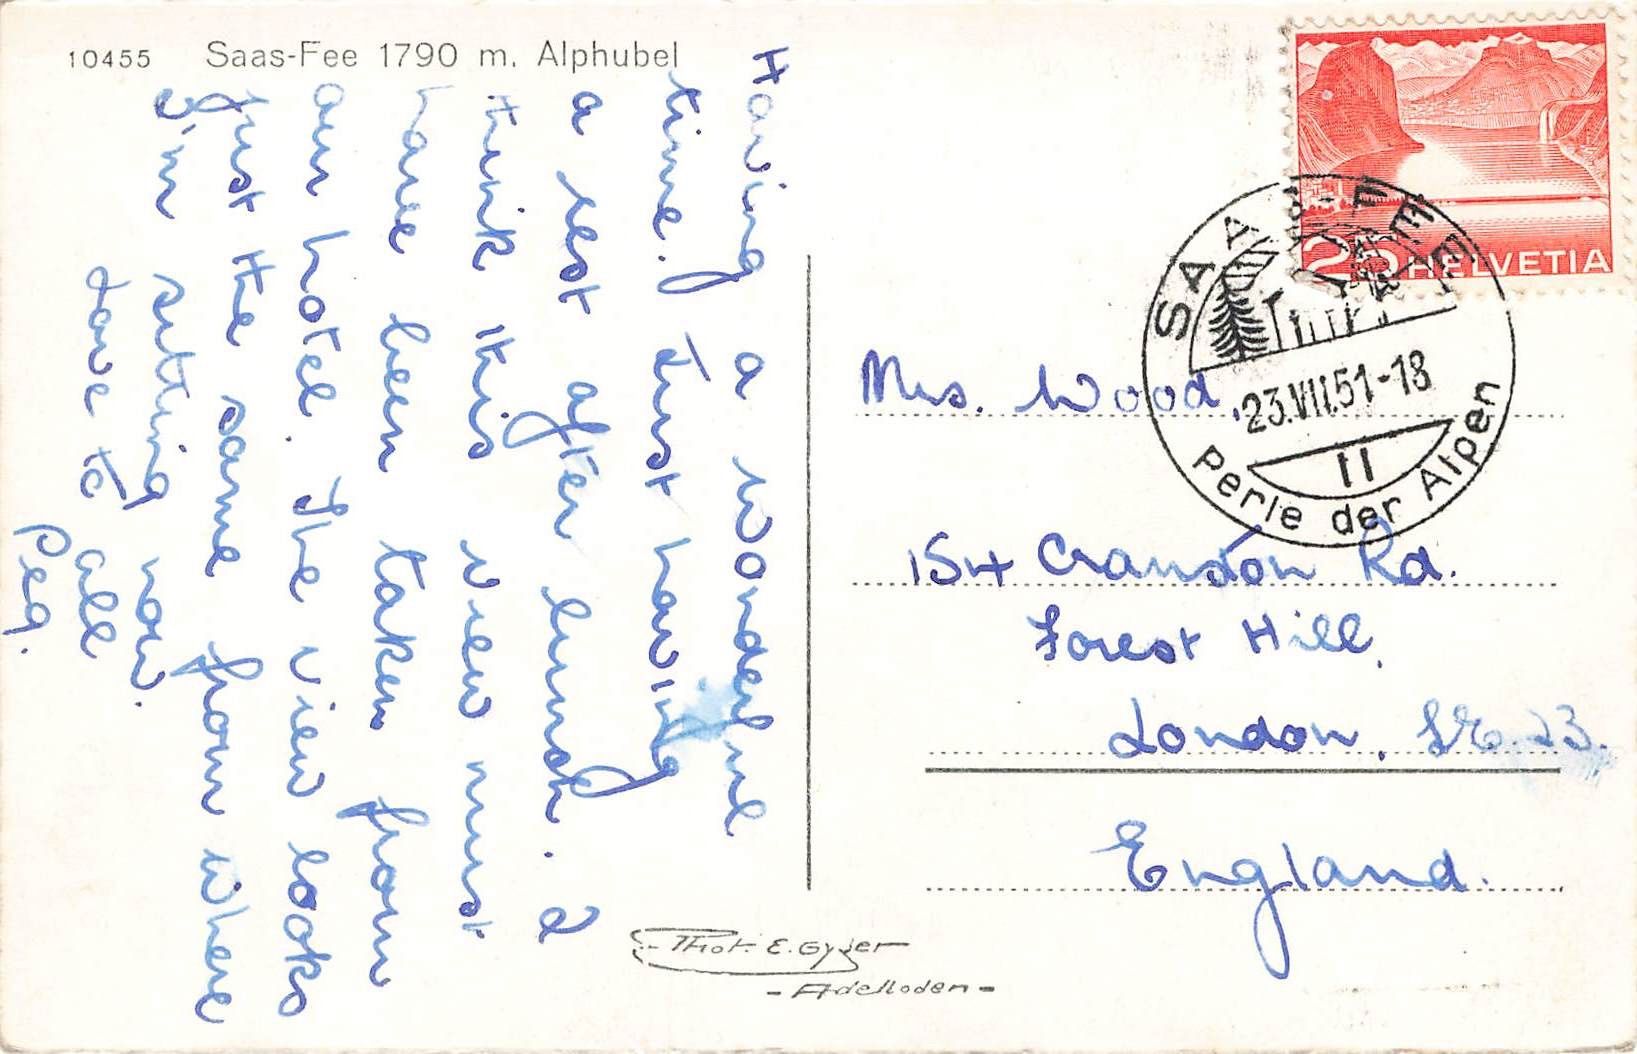 10455 Saas-Fee 1790 m. Alphubel
Having a wonderful
time. Just having
a rest after lunch. I
think this view must
have been taken from
our hotel. The view looks
just the same from where
I'm sitting now.
Love to all
Peg.
Phot. E. Gyger
- Adelboden -
HELVETIA
25
SAAS-FEE
23.VII.51-18
11
Perle der Alpen
Mrs. Wood,
154 Cranston Rd.
Forest Hill,
London, SE. 23.
England.